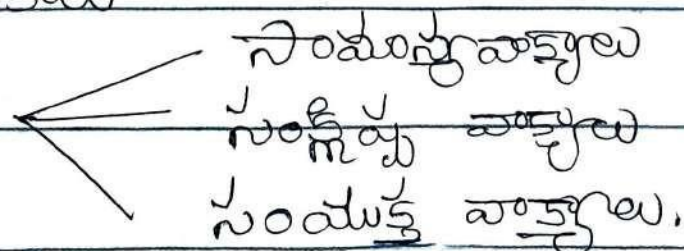 సామాన్యవాక్యాలు
సంశ్లిష్ట వాక్యాలు
సంయుక్త వాక్యాలు.